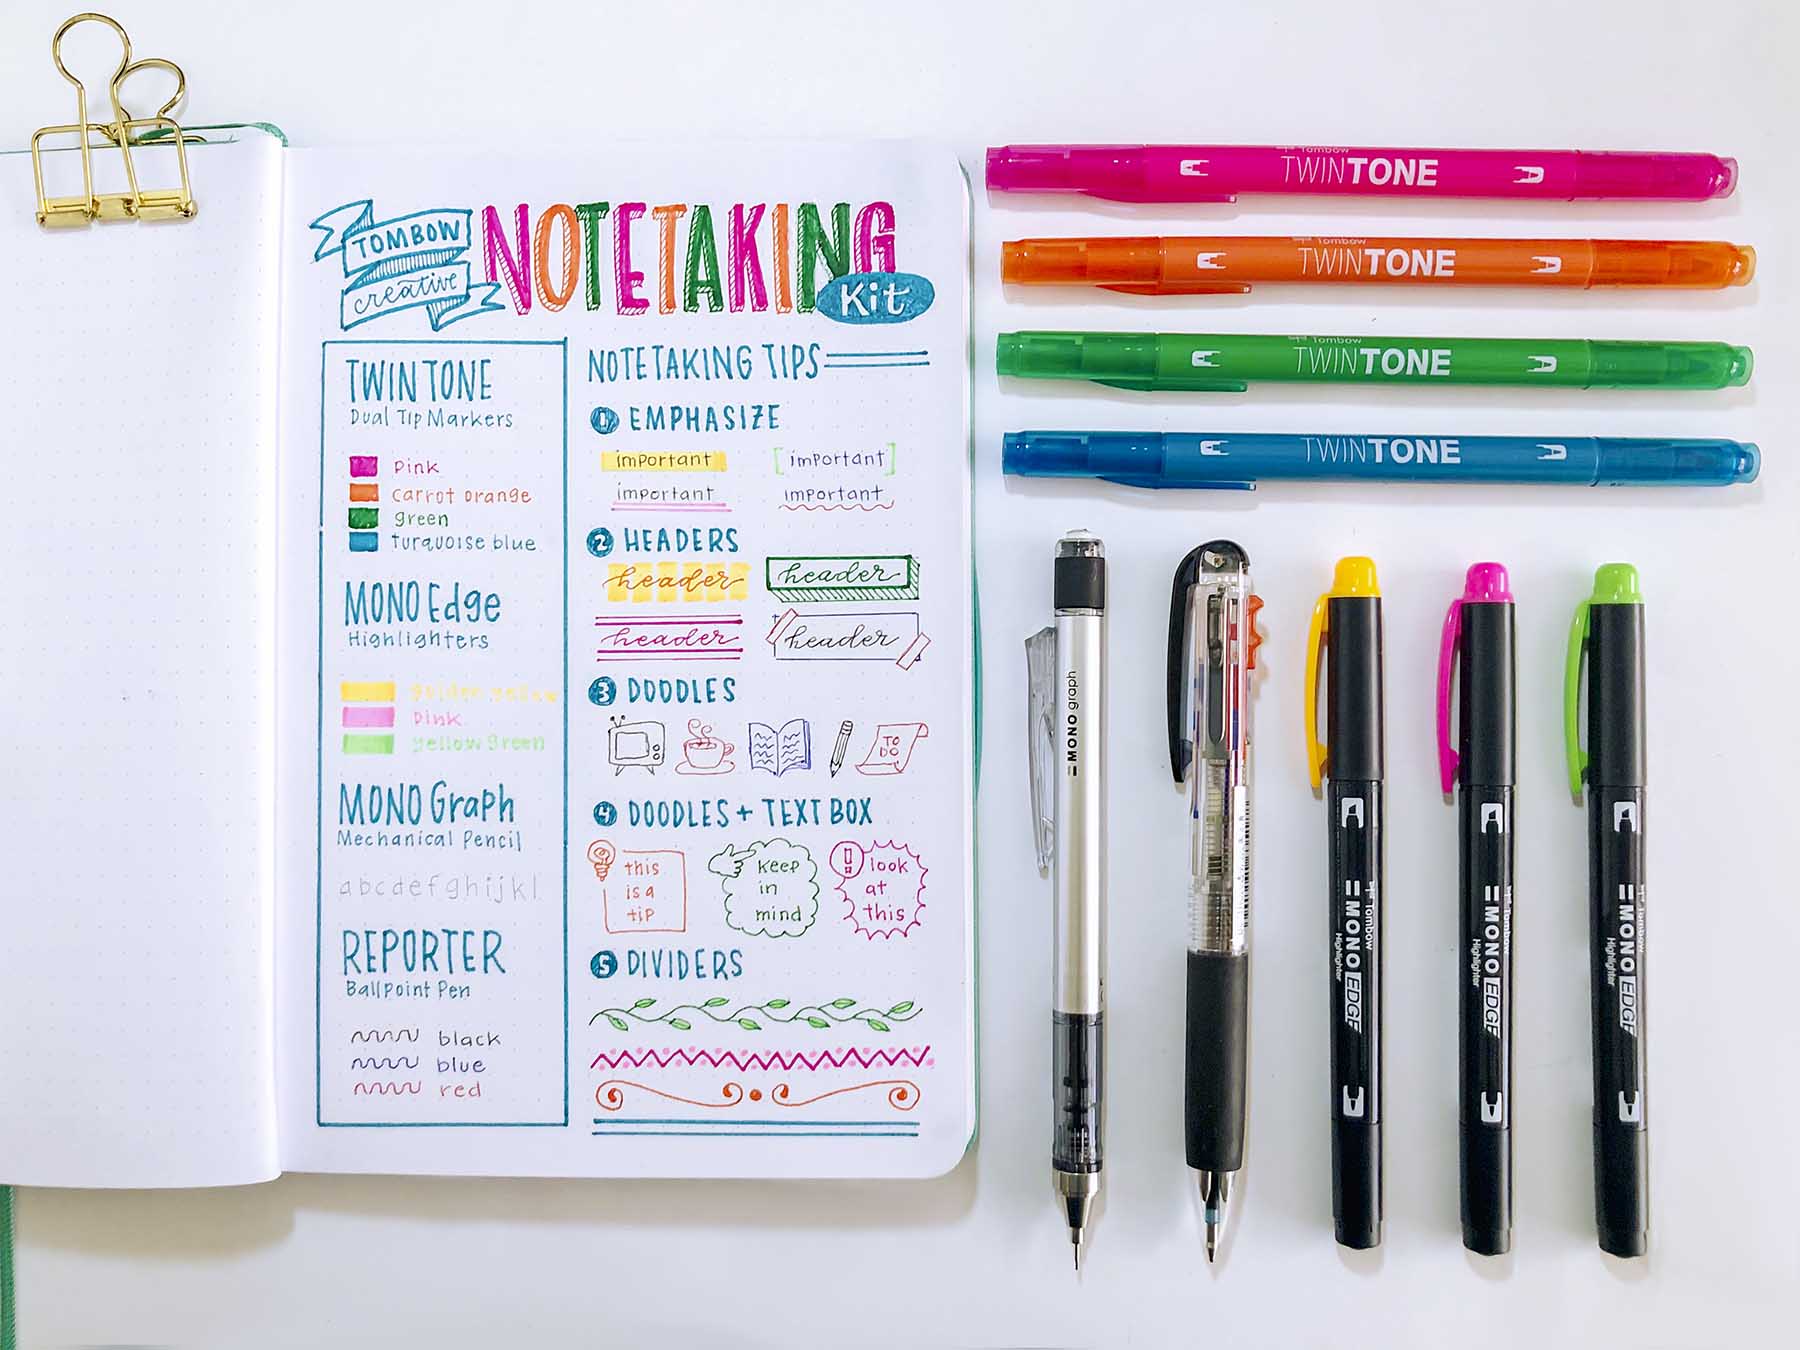 TOMBOW
creative
NOTETAKING
Kit
TWINTONE
Dual Tip Markers
pink
carrot orange
green
turquoise blue
MONO Edge
Highlighters
golden yellow
pink
yellow green
MONO Graph
Mechanical Pencil
abcdefghijkl
REPORTER
Ballpoint Pen
black
blue
red
NOTETAKING TIPS
1 EMPHASIZE
important [important]
important important
2 HEADERS
header header
header header
3 DOODLES
TO
DO
4 DOODLES + TEXT BOX
this
is a
tip
keep
in
mind
! look
at
this
5 DIVIDERS
Tombow
TWINTONE
Tombow
TWINTONE
Tombow
TWINTONE
TWINTONE
MONO graph
Tombow
MONO EDGE
Highlighter
Tombow
MONO EDGE
Highlighter
Tombow
MONO EDGE
Highlighter